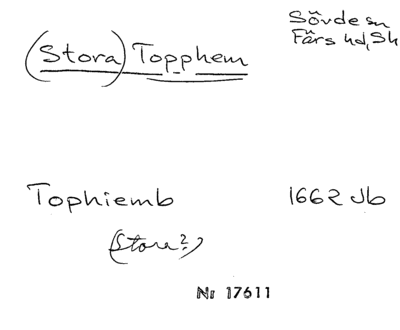 Sövde sn
(Stora) Topphem
Färs hd, Sk
Tophiemb 1662 Jb
(Stora?)
Nr 17611